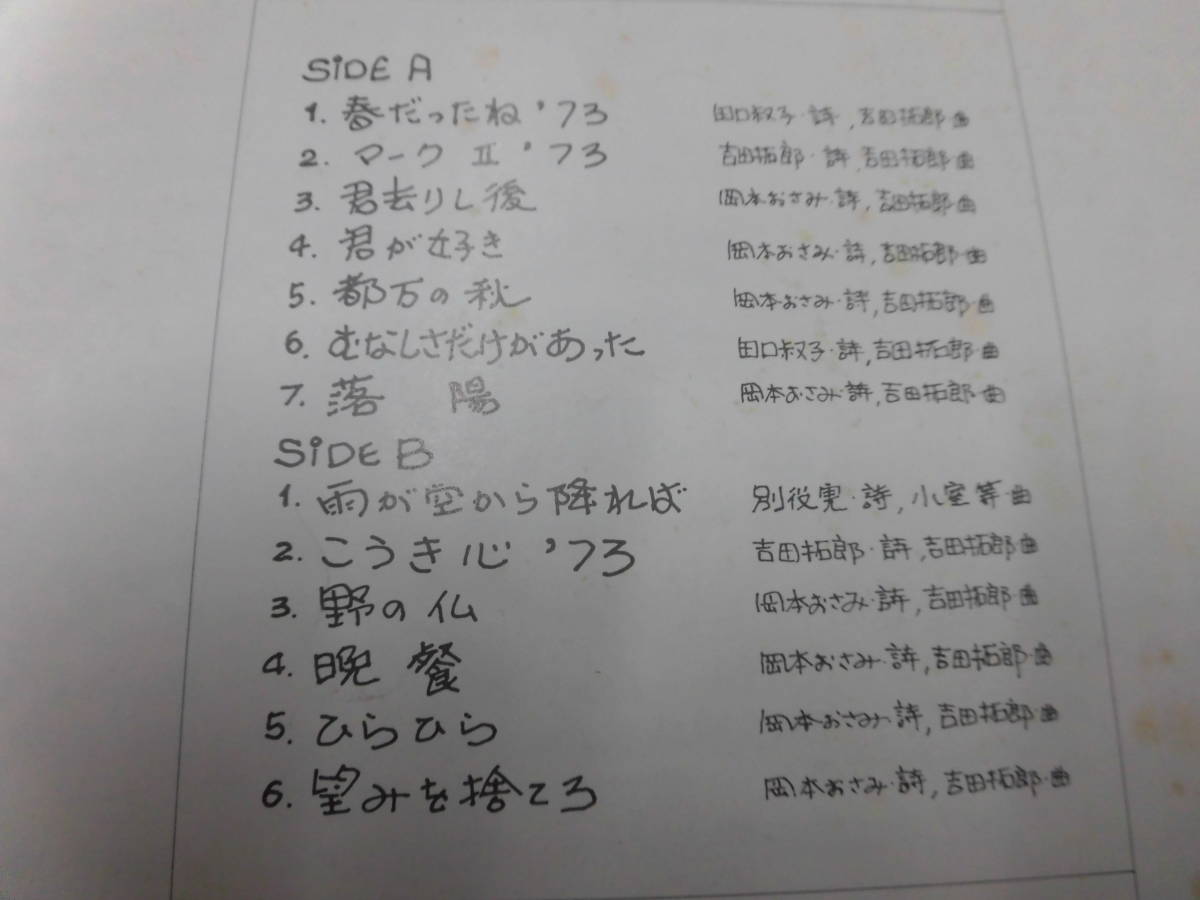 SiDE A
1. 春だったね '73 田口叔子・詩, 吉田拓郎・曲
2. マーク II '73 吉田拓郎・詩, 吉田拓郎・曲
3. 君去りし後 岡本おさみ・詩, 吉田拓郎・曲
4. 君が好き 岡本おさみ・詩, 吉田拓郎・曲
5. 都万の秋 岡本おさみ・詩, 吉田拓郎・曲
6. むなしさだけがあった 田口叔子・詩, 吉田拓郎・曲
7. 落 陽 岡本おさみ・詩, 吉田拓郎・曲
SiDE B
1. 雨が空から降れば 別役実・詩, 小室等・曲
2. こうき心 '73 吉田拓郎・詩, 吉田拓郎・曲
3. 野の仏 岡本おさみ・詩, 吉田拓郎・曲
4. 晩 餐 岡本おさみ・詩, 吉田拓郎・曲
5. ひらひら 岡本おさみ・詩, 吉田拓郎・曲
6. 望みを捨てろ 岡本おさみ・詩, 吉田拓郎・曲